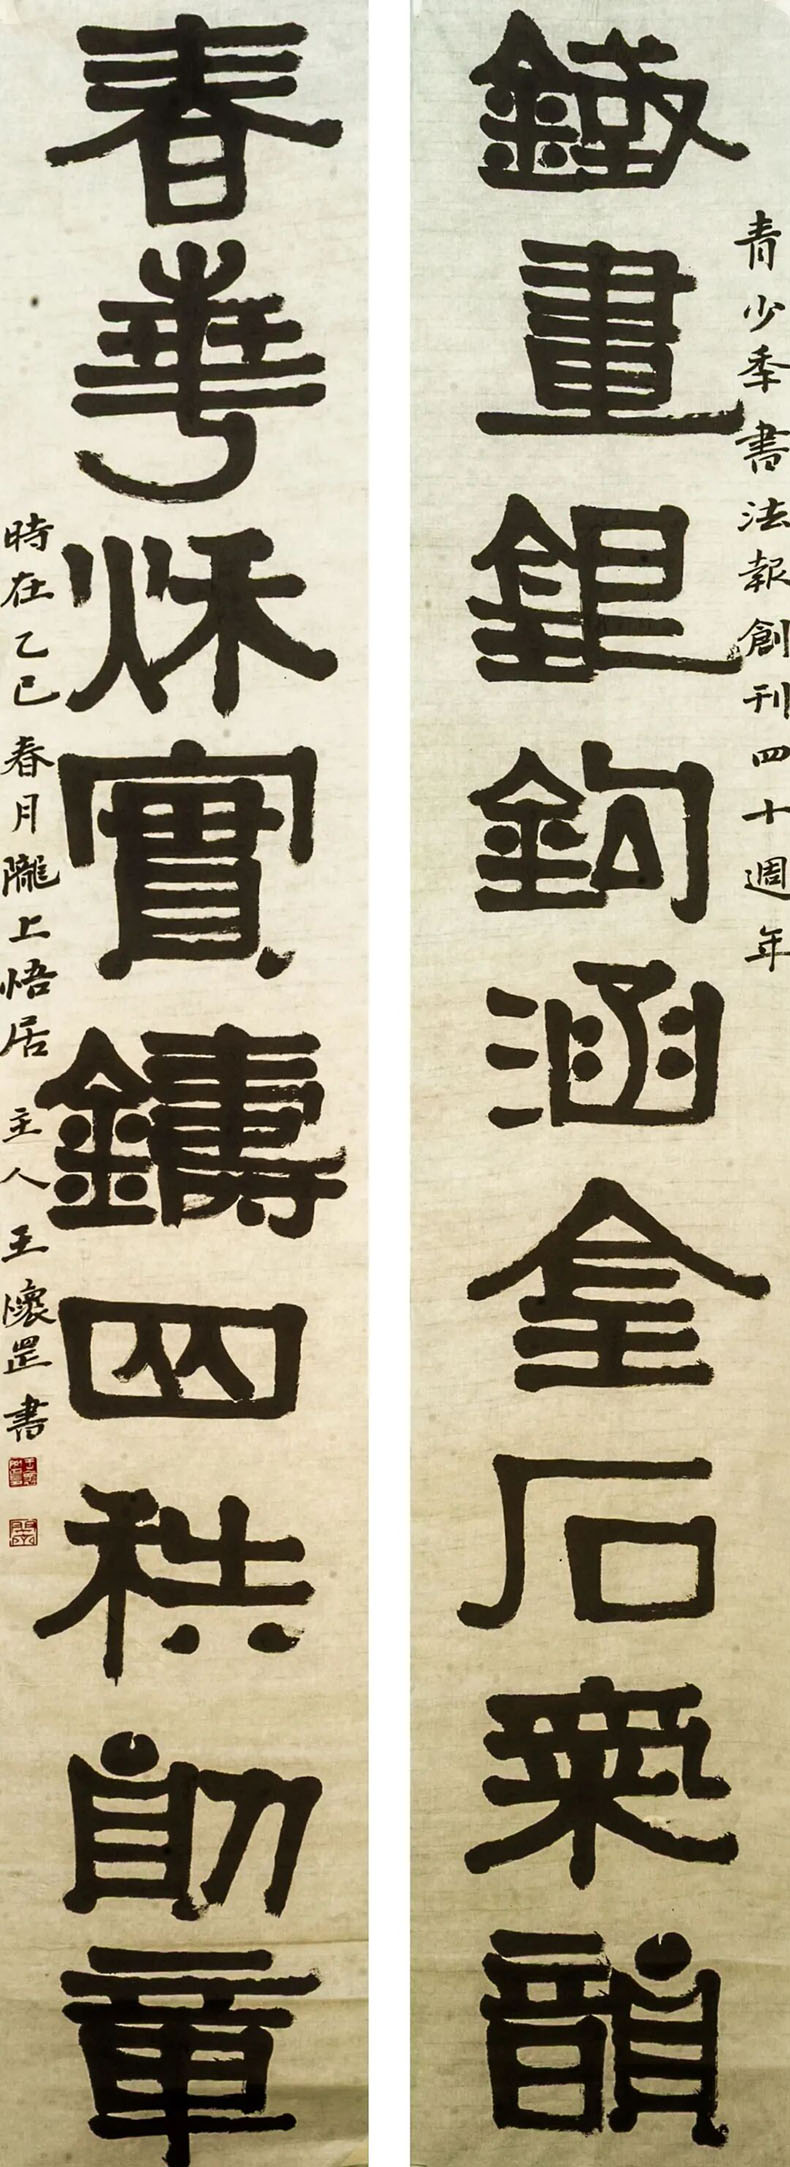 青少年書法報創刊四十週年
鐵畫銀鉤涵金石氣韻
春華秋實鑄四秩勛章
時在乙巳春月隴上悟居主人王懷罡書